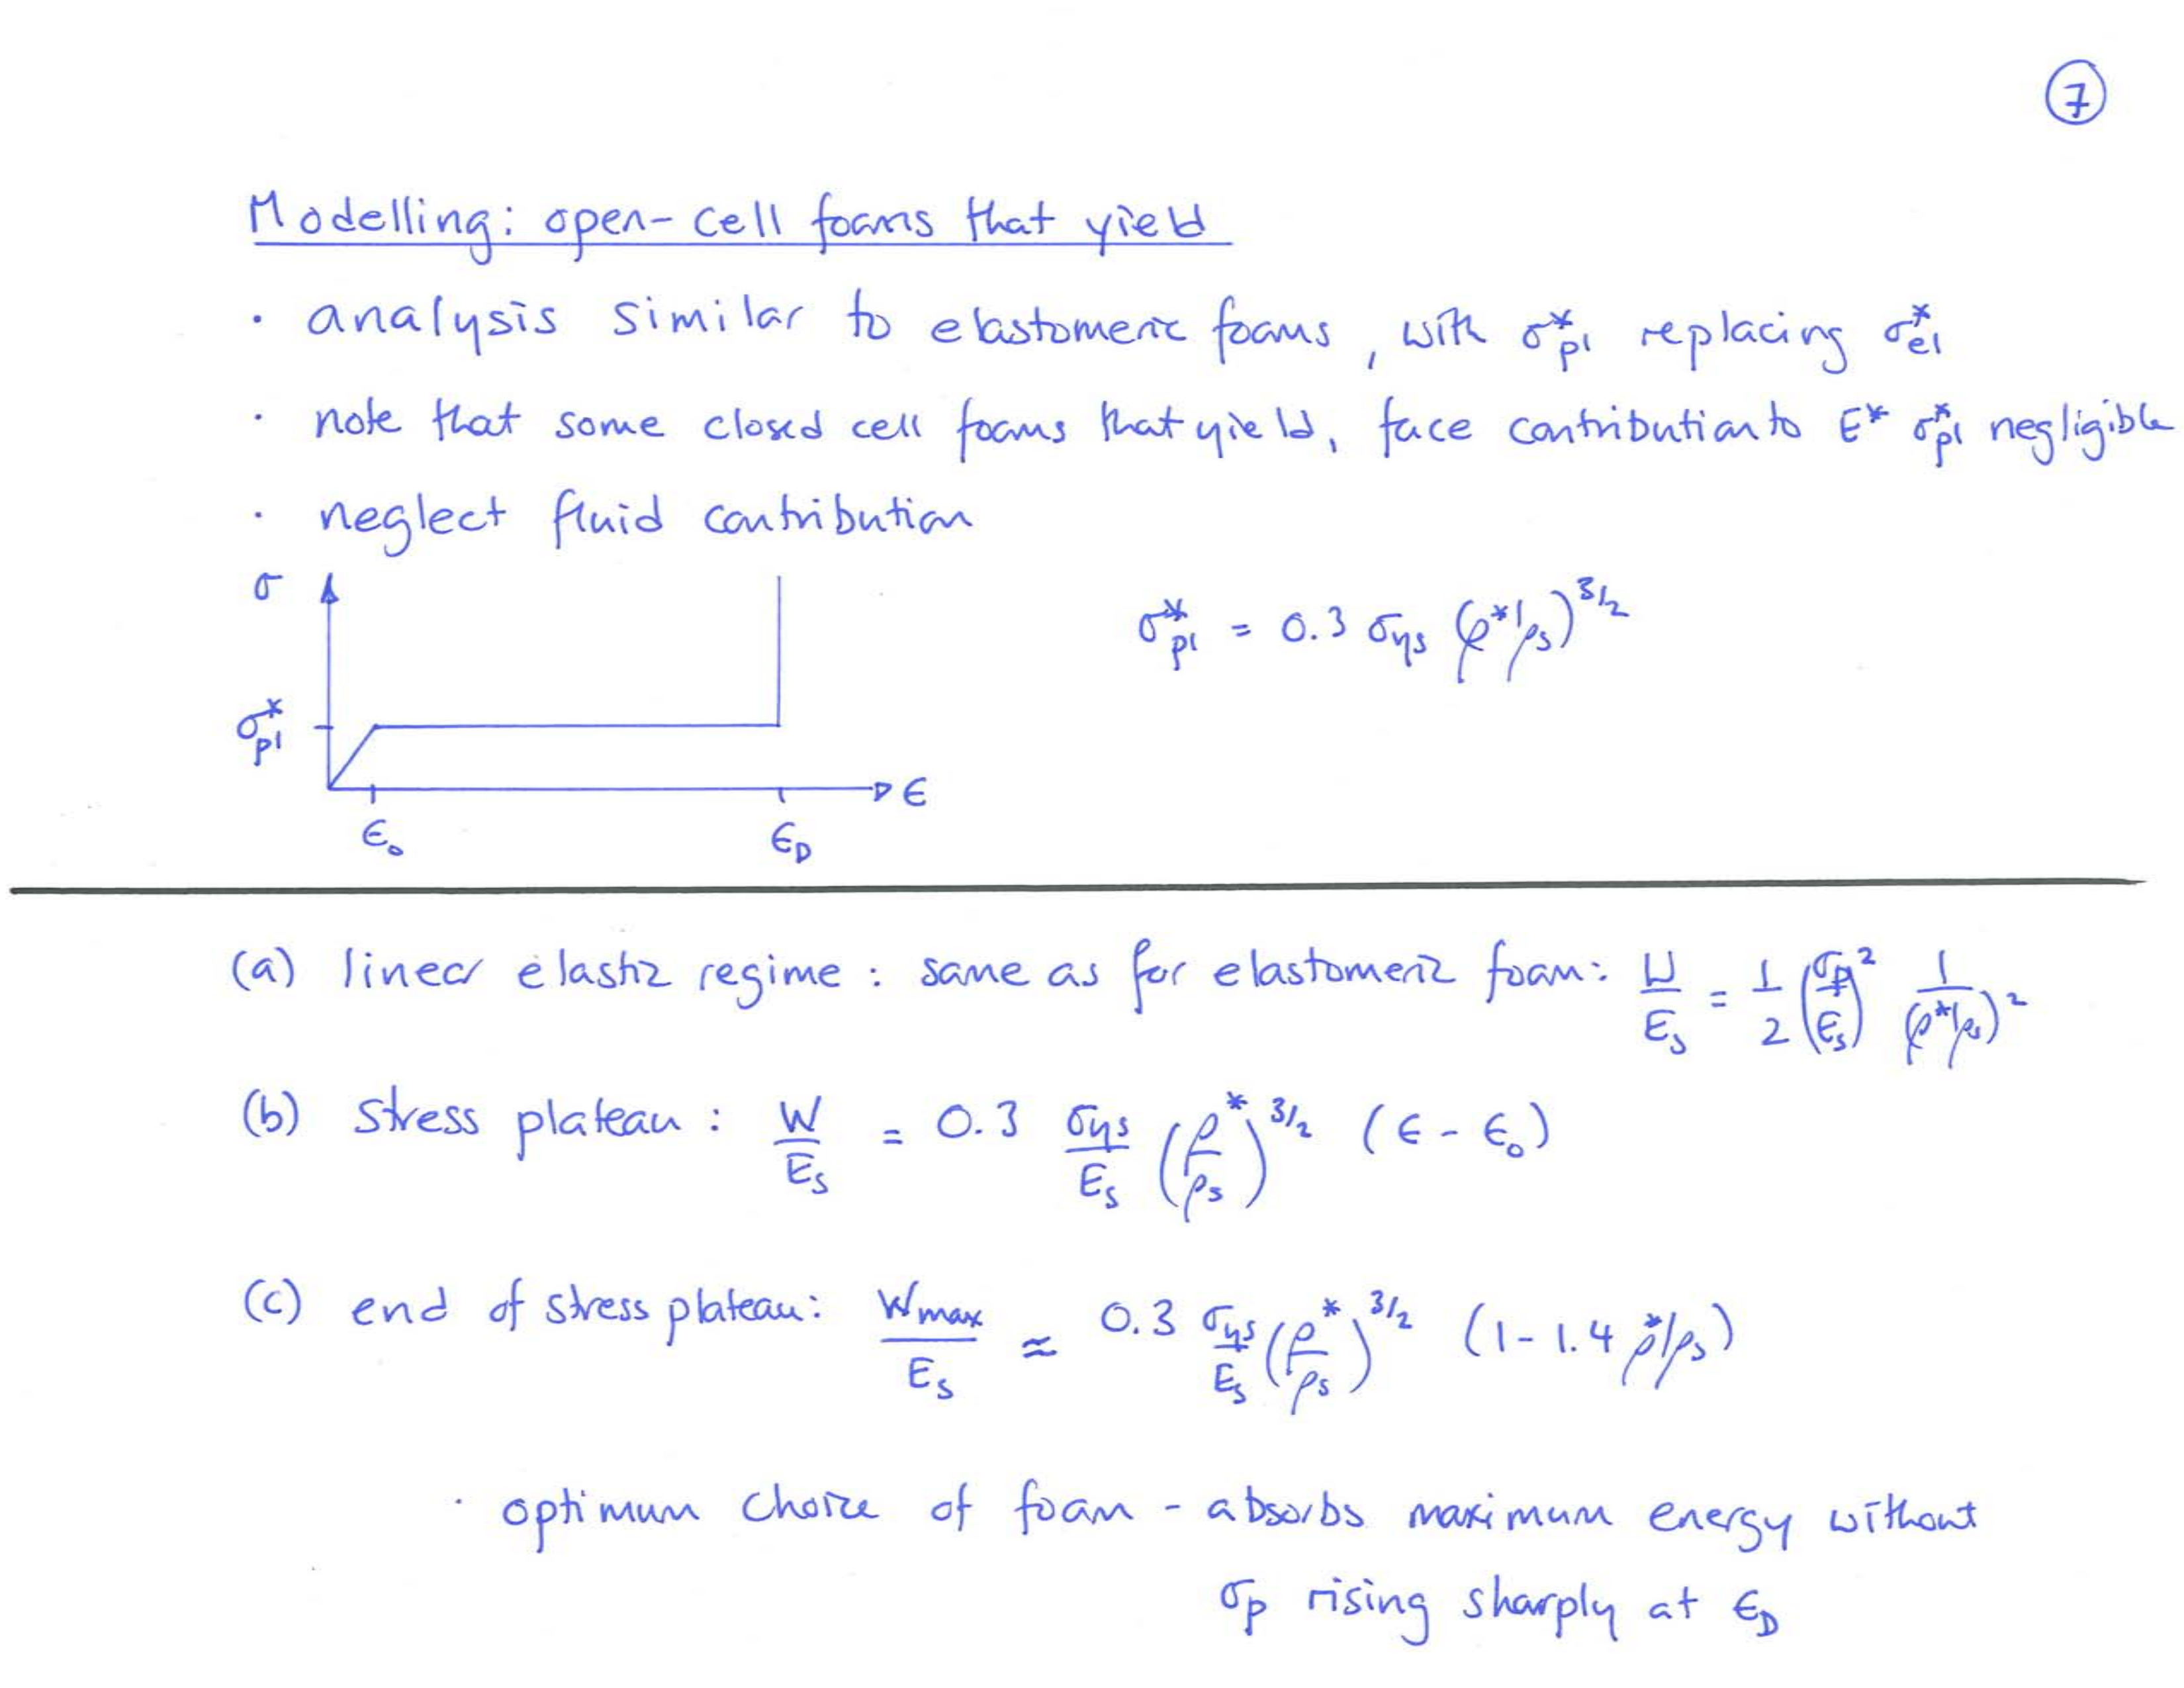 7
Modelling: open-cell foams that yield
· analysis similar to elastomeric foams, with σ*pl replacing σ*el
· note that some closed cell foams that yield, face contribution to E* σ*pl negligible
· neglect fluid contribution
σ
σ*pl = 0.3 σys (ρ*/ρs)^3/2
σ*pl
ϵ
ϵ₀ ϵD
(a) linear elastic regime: same as for elastomeric foam: W/Es = 1/2 (σp/Es)² 1/(ρ*/ρs)²
(b) stress plateau: W/Es = 0.3 σys/Es (ρ*/ρs)^3/2 (ϵ - ϵ₀)
(c) end of stress plateau: Wmax/Es ≈ 0.3 σys/Es (ρ*/ρs)^3/2 (1 - 1.4 ρ*/ρs)
· optimum choice of foam - absorbs maximum energy without
σp rising sharply at ϵD